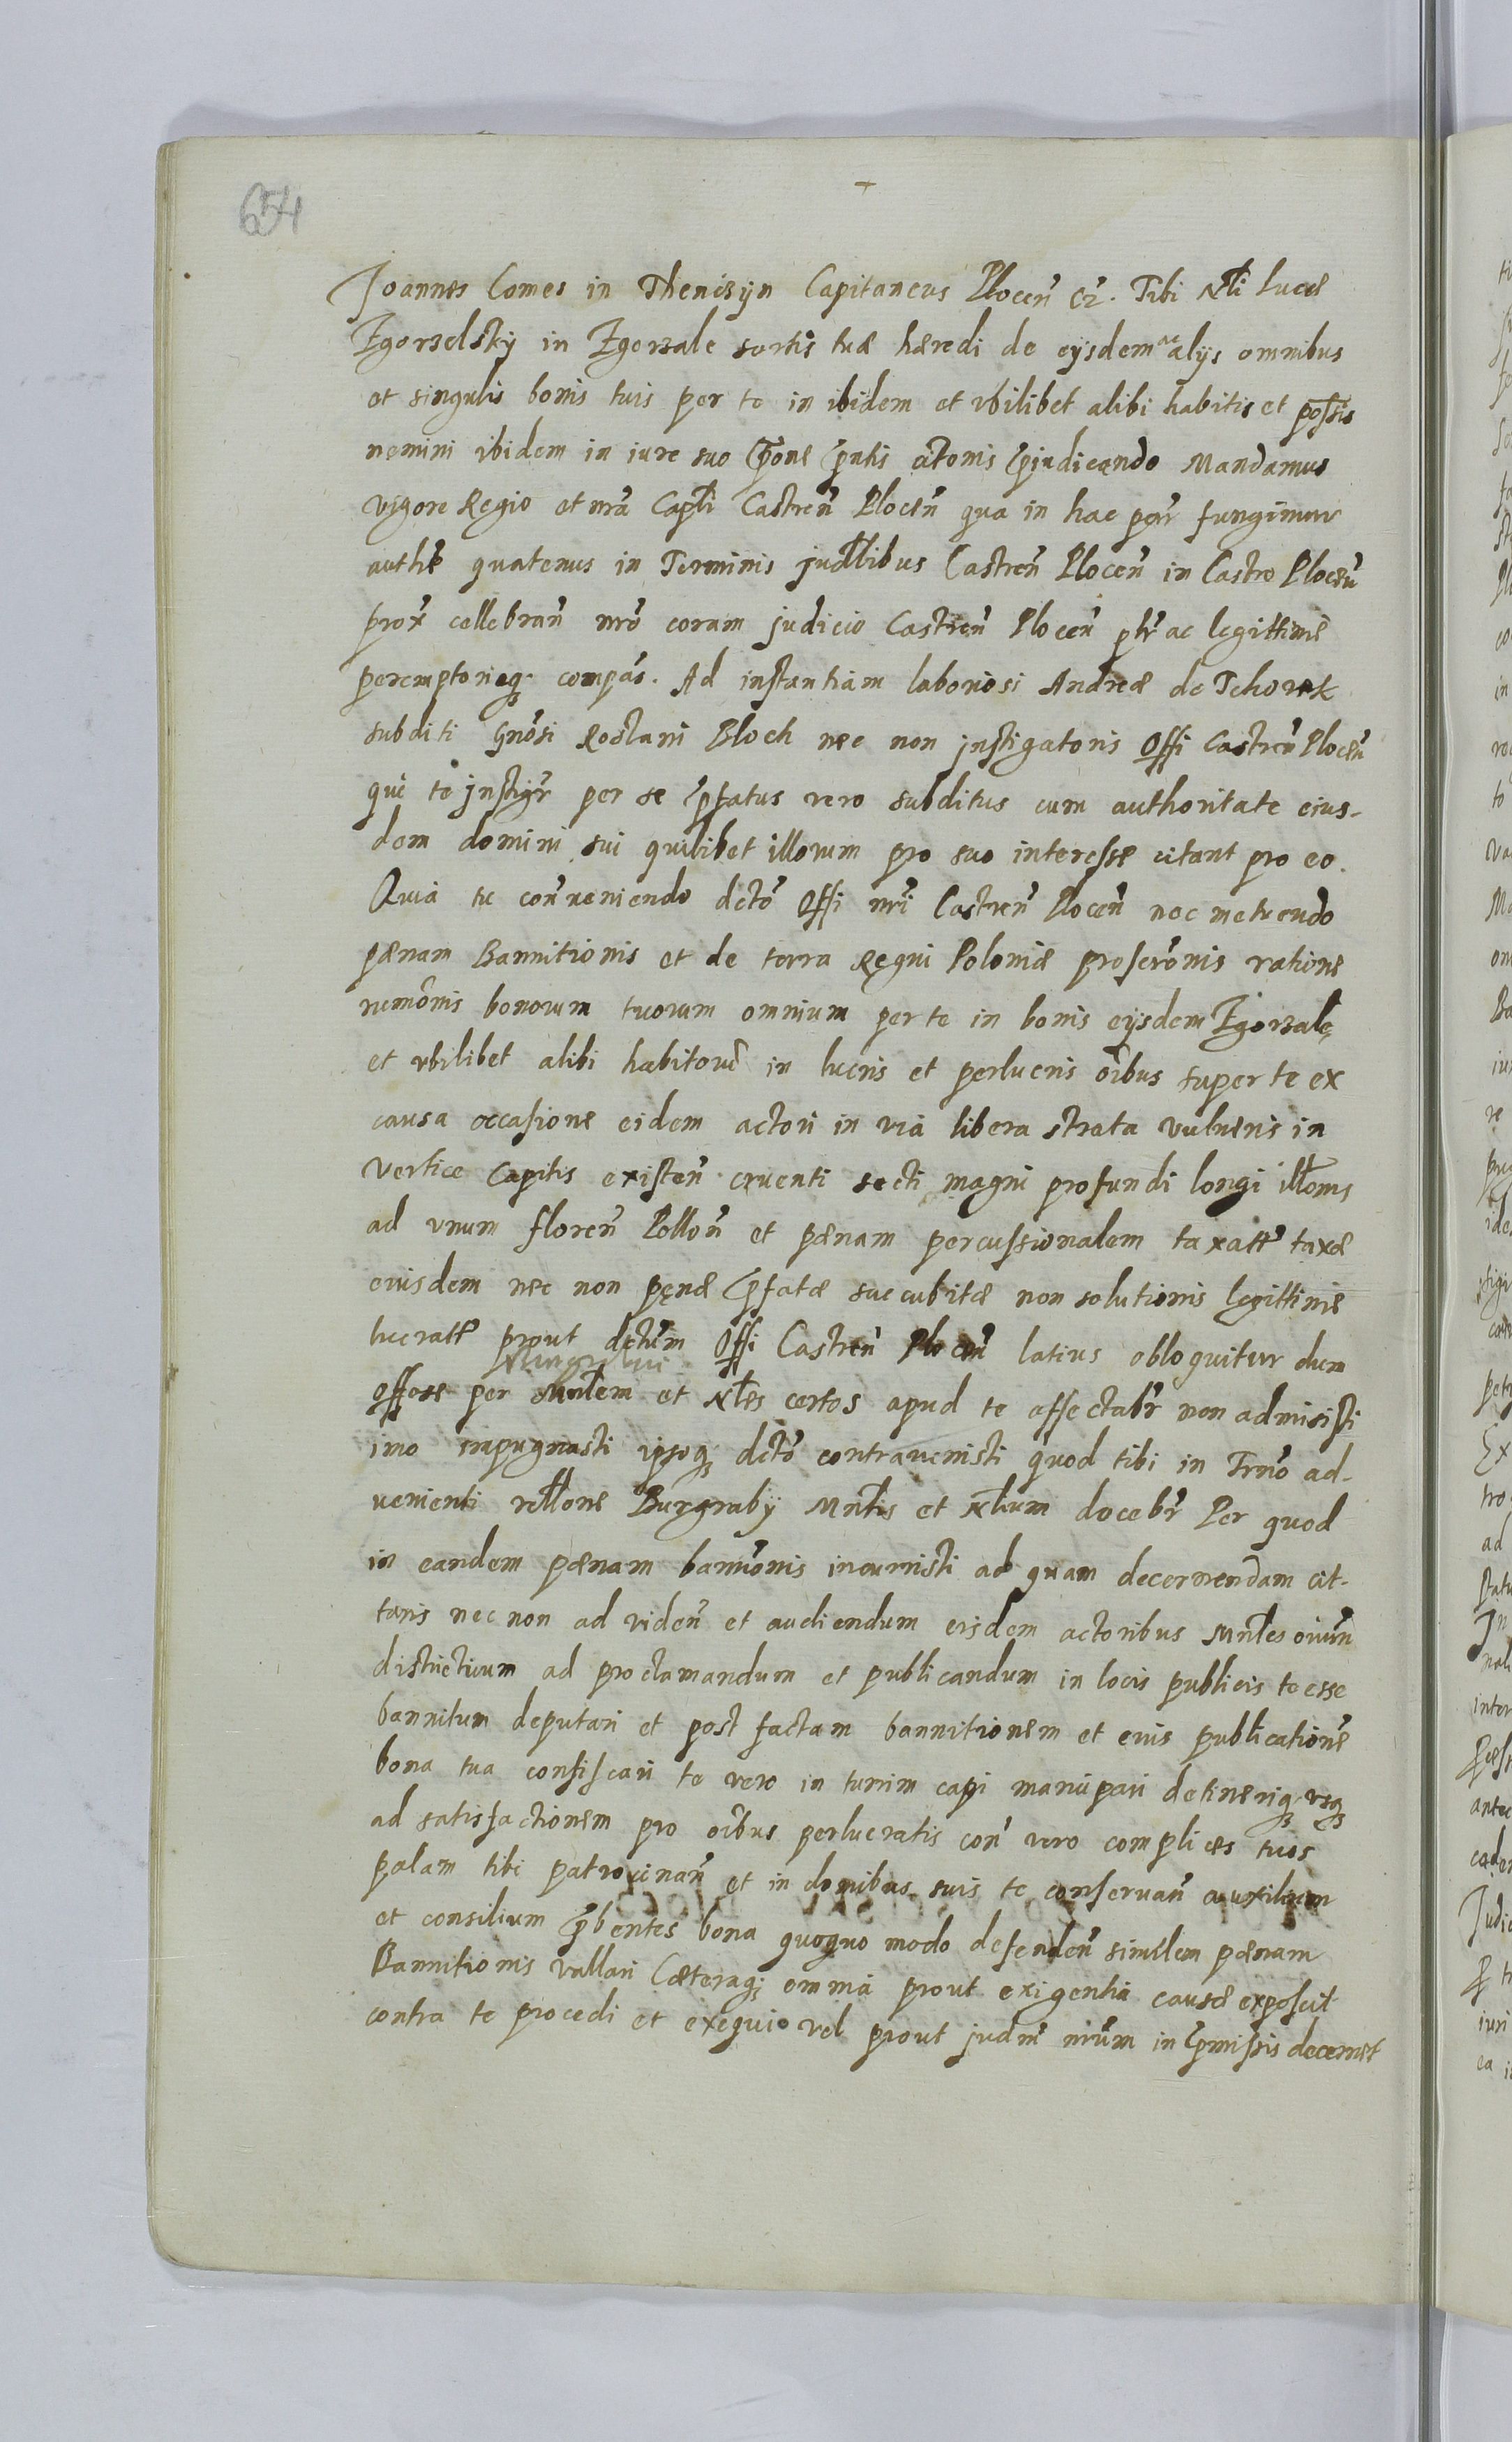 654
Joannes Comes in Thenczyn Capitaneus Plocen̄ etz. Tibi Nłi Lucæ
Zgorzelsky in Zgorzale sortis tuæ hæredi de eijsdem ac alijs omnibus
et singulis bonis tuis per te in ibidem et vbilibet alibi habitis et possis
nemini ibidem in iure suo p̄one p̄ntis c̄itonis p̄iudicando Mandamus
vigore Regio et nrā Capłi Castren̄ Plocen̄ qua in hac per̄ fungimur
authē quatenus in Terminis judłłibus Castren̄ Plocen̄ in Castro Plocen̄
prox̄ cellebran̄ nrō coram judicio Castren̄ Plocen̄ pl̄r ac legittimē
peremptorieq; compās. Ad instantiam laboriosi Andreæ de Tchorzk
subditi Gn̄osi Rostani Bloch nec non jnstigatoris Offi Castren̄ Plocen̄
qui te jnstigr̄ per se p̄fatus vero subditus cum authoritate eius-
dem domini sui quilibet illorum pro suo interesse citant pro eo.
Quia tu con̄ueniendo dctō Offi nrī Castren̄ Plocen̄ nec metuendo
pænam Bannitionis et de terra Regni Poloniæ proscrōnis ratione
rumōnis bonorum tuorum omnium per te in bonis eijsdem Zgorzale
et vbilibet alibi habitorū in lucris et perlucris oībus super te ex
causa occasione eidem actori in via libera strata vulneris in
vertice Capitis existen̄ cruenti secti magni profundi longi illonis
ad vnum floren̄ Pollon̄ et pænam percussionalem taxatt̄ taxæ
eiusdem nec non pęnæ p̄fatæ succubitæ non solutionis legittimē
lucratt̄ prout dctūm Offi Castren̄ Plocen̄ latius obloquitur dum
Offose per Mnłem et Nłes certos apud te affectabr̄ non admisisti
imo impugnasti ipsoq; dctō contrauenisti quod tibi in Trnō ad-
uenienti rełłone Burgrabij Mnłis et Nłium docebr̄ Per quod
in eandem pænam bannōnis incurristi ad quam decernendam cit-
taris nec non ad viden̄ et audiendum eisdem actoribus Mnłes oiūm
districtuum ad proclamandum et publicandum in locis publicis te esse
bannitum deputari et post factam bannitionem et eius publicationē
bona tua confiscari te vero in turrim capi manūpari detineriq; vsq;
ad satisfactionem pro oībus perlucratis con̄ vero complices tuos
palam tibi patrocinan̄ et in domibus suis te conseruan̄ auxilium
et consilium p̄bentes bona quoquo modo defenden̄ similem pænam
Bannitionis vallari Cæteraq; omnia prout exigentia causæ exposcit
contra te procedi et exequi vel prout judm̄ nrūm in p̄missis decernet